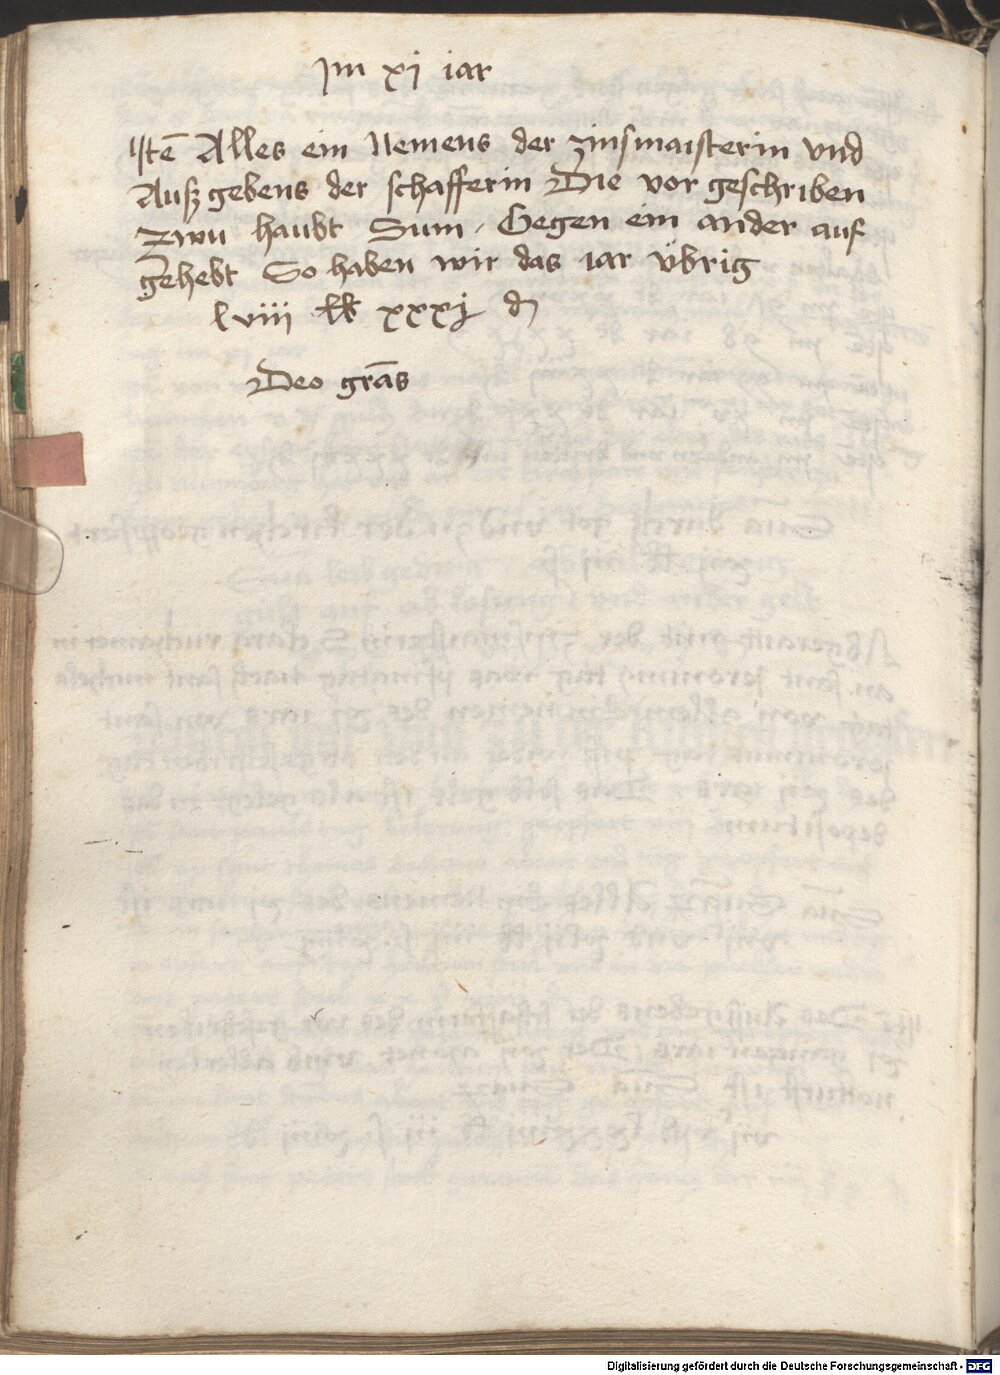 Jm xj iar
Jtē Alles ein Nemens der zinsmaisterin vnd
Außgebens der schafferin Die vor geschriben
zwu haubt Sum / Gegen ein ander auf
gehebt So haben wir das iar übrig
lviii lb xxxj d
Deo grās
Digitalisierung gefördert durch die Deutsche Forschungsgemeinschaft - DFG